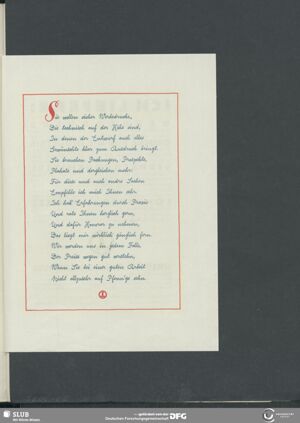 Sie wollen sicher Werbedrucke,
Die technisch auf der Höhe sind,
In denen der Entwurf auch alles
Gewünschte klar zum Ausdruck bringt.
Sie brauchen Packungen, Prospekte,
Plakate und dergleichen mehr:
Für diese und noch andre Sachen
Empfehle ich mich Ihnen sehr.
Ich hab Erfahrungen durch Praxis
Und rate Ihnen herzlich gern,
Und dafür Honorar zu nehmen,
Das liegt mir wirklich gänzlich fern.
Wir werden uns in jedem Falle
Der Preise wegen gut verstehn,
Wenn Sie bei einer guten Arbeit
Nicht allzusehr auf Pfennige sehn.
SLUB
Wir führen Wissen.
gefördert von der
Deutschen Forschungsgemeinschaft
DFG